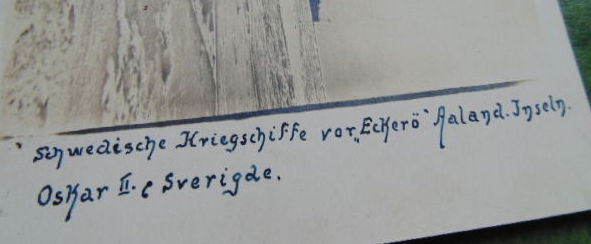 Schwedische Kriegschiffe vor „Eckerö“ Aaland. Inseln.
Oskar II. e Sverigde.